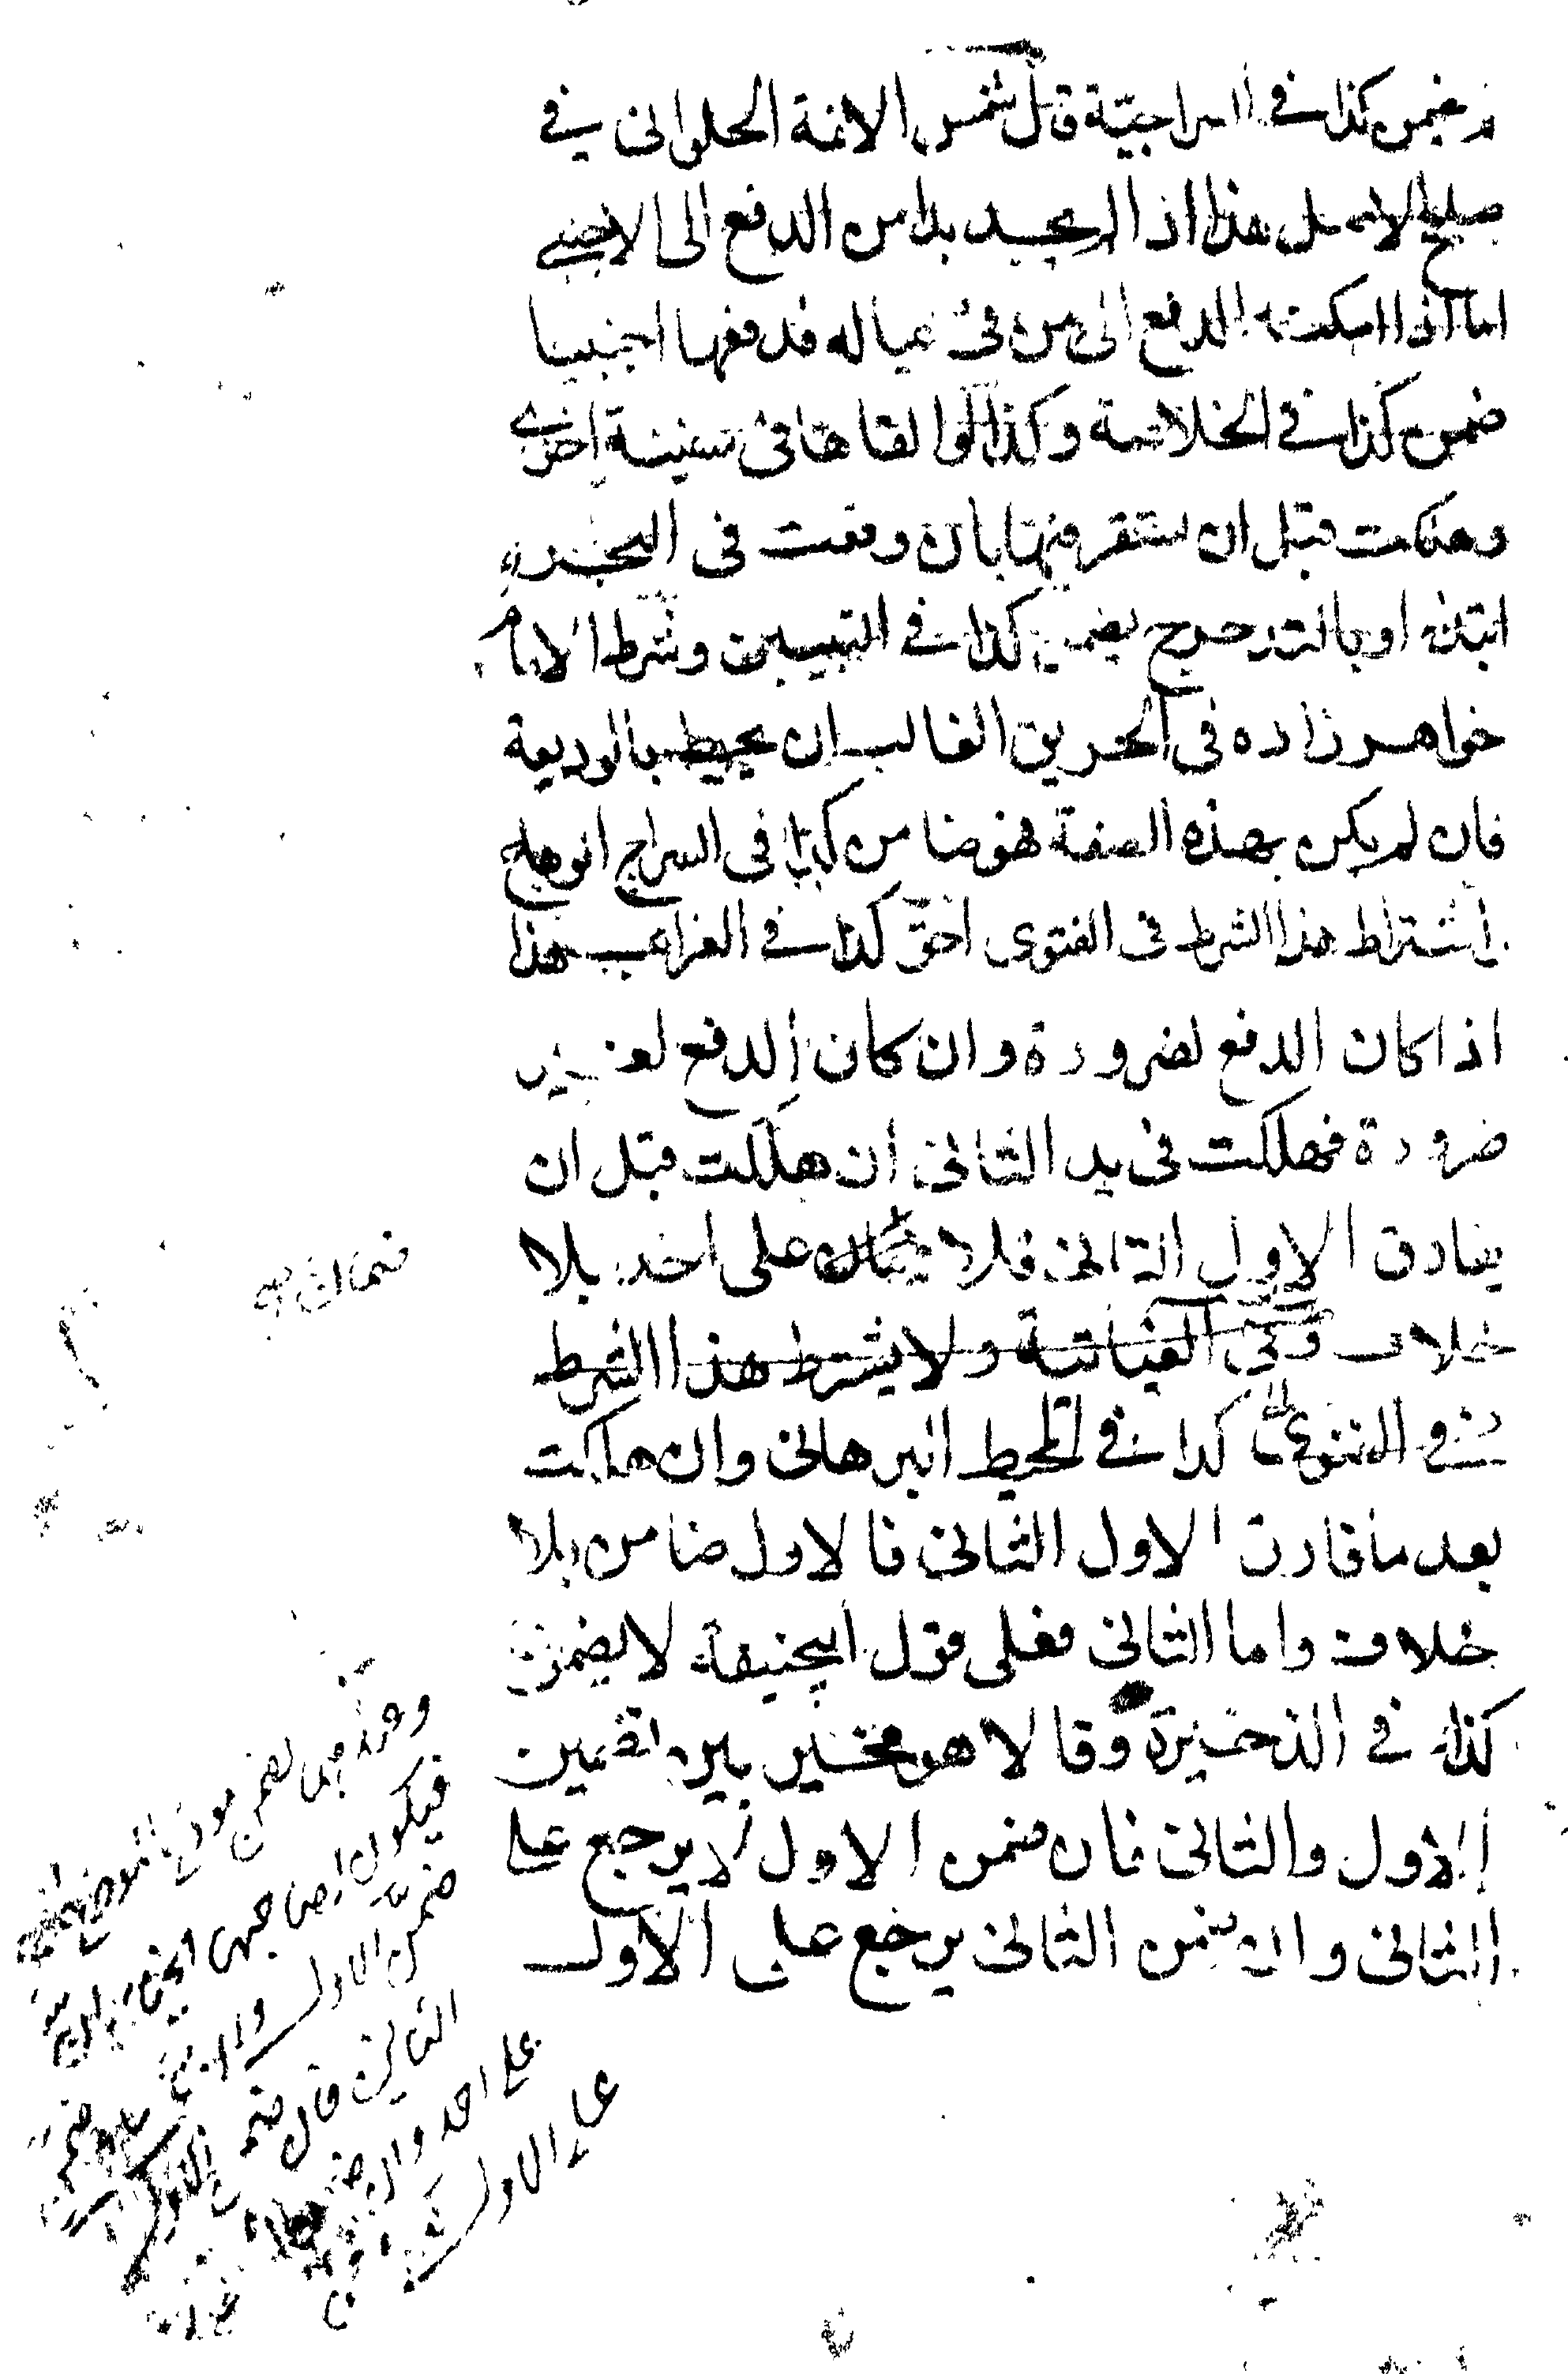 يضمن كذا في السراجية قال شمس الائمة الحلواني في
صلح الاصل هذا اذا لم يجد بدا من الدفع الى الاجنبي
اما اذا امكنه الدفع الى من في عياله فدفعها اجنبيا
ضمن كذا في الخلاصة وكذا لو القاها في سفينة اخرى
وهلكت قبل ان تستقر فيها بان وقعت في البحر
ابتداء او بالتدحرج يضمن كذا في التبيين وشرط الامام
خواهر زاده في الحريق الغالب ان يحيط بالوديعة
فان لم يكن بهذه الصفة فهو ضامن كذا في السراج الوهاج
اشتراط هذا الشرط في الفتوى احق كذا في الغرائب هذا
اذا كان الدفع لضرورة وان كان الدفع لغير
ضرورة فهلكت في يد الثاني ان هلكت قبل ان
يفارق الاول الثاني فلا ضمان على احد بلا
ضمان صح
خلاف وفي الغياثية ولا يشترط هذا الشرط
في الفتوى كذا في المحيط البرهاني وان هلكت
بعد ما فارق الاول الثاني فالاول ضامن بلا
خلاف واما الثاني فعلى قول ابيحنيفة لا يضمن
كذا في الذخيرة وقالا هو مخير بين تضمين
الاول والثاني فان ضمن الاول لا يرجع على
الثاني وان ضمن الثاني يرجع على الاول
فيكون
ضمن الاول
الثاني فان ضمن
على احد وان
على الاول